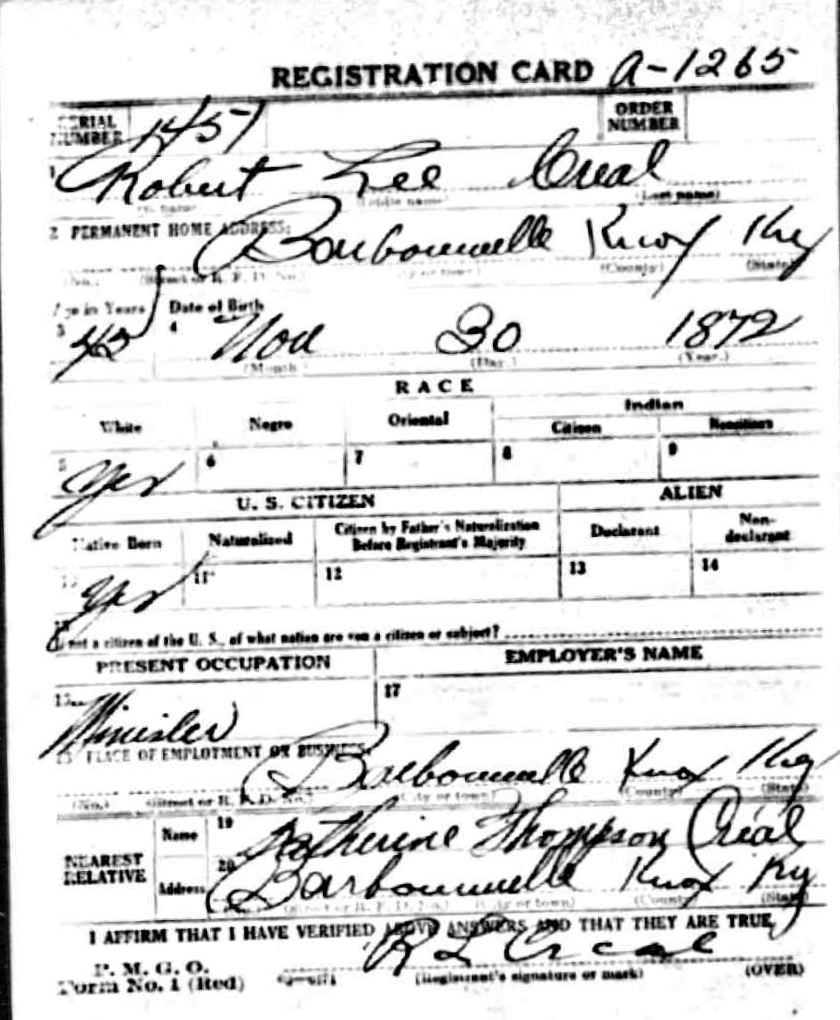 REGISTRATION CARD A-1265
SERIAL NUMBER 1451 ORDER NUMBER
1 Robert Lee Creal
(Middle name) (Last name)
2 PERMANENT HOME ADDRESS:
Barbourville Knox Ky
(No.) (Street or R. F. D. No.) (City or town) (County) (State)
Age in Years Date of Birth
3 45 4 Nov 30 1872
(Month) (Day.) (Year.)
RACE
White Negro Oriental Indian
Citizen Noncitizen
5 Yes 6 7 8 9
U. S. CITIZEN ALIEN
Native Born Naturalized Citizen by Father's Naturalization Before Registrant's Majority Declarant Non-declarant
10 Yes 11 12 13 14
15 If not a citizen of the U. S., of what nation are you a citizen or subject?
PRESENT OCCUPATION EMPLOYER'S NAME
16 Minister 17
18 PLACE OF EMPLOYMENT OR BUSINESS:
Barbourville Knox Ky
(No.) (Street or R. F. D. No.) (City or town) (County) (State)
NEAREST RELATIVE Name 19 Katherine Thompson Creal
Address 20 Barbourville Knox Ky
(No.) (Street or R. F. D. No.) (City or town) (County) (State)
I AFFIRM THAT I HAVE VERIFIED ABOVE ANSWERS AND THAT THEY ARE TRUE
R L Creal
P. M. G. O.
Form No. 1 (Red) (Registrant's signature or mark) (OVER)